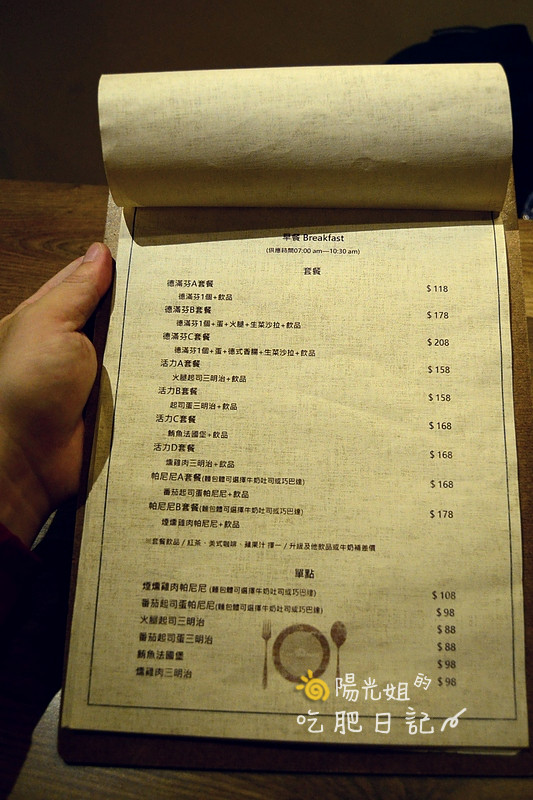 早餐 Breakfast
(供應時間07:00 am—10:30 am)
套餐
德滿芬A套餐 $ 118
德滿芬1個+飲品
德滿芬B套餐 $ 178
德滿芬1個+蛋+火腿+生菜沙拉+飲品
德滿芬C套餐 $ 208
德滿芬1個+蛋+德式香腸+生菜沙拉+飲品
活力A套餐 $ 158
火腿起司三明治+飲品
活力B套餐 $ 158
起司蛋三明治+飲品
活力C套餐 $ 168
鮪魚法國堡+飲品
活力D套餐 $ 168
燻雞肉三明治+飲品
帕尼尼A套餐(麵包體可選擇牛奶吐司或巧巴達) $ 168
番茄起司蛋帕尼尼+飲品
帕尼尼B套餐(麵包體可選擇牛奶吐司或巧巴達) $ 178
煙燻雞肉帕尼尼+飲品
※套餐飲品 / 紅茶、美式咖啡、蘋果汁 擇一 / 升級及他飲品或牛奶補差價
單點
煙燻雞肉帕尼尼 (麵包體可選擇牛奶吐司或巧巴達) $ 108
番茄起司蛋帕尼尼(麵包體可選擇牛奶吐司或巧巴達) $ 98
火腿起司三明治 $ 88
番茄起司蛋三明治 $ 88
鮪魚法國堡 $ 98
燻雞肉三明治 $ 98
陽光姐的
吃肥日記